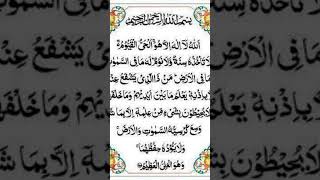 بِسْمِ اللهِ الرَّحْمٰنِ الرَّحِيْمِ
اَللهُ لَاۤ اِلٰهَ اِلَّا هُوَ اَلْحَیُّ الْقَیُّوْمُ
لَا تَاْخُذُهٗ سِنَةٌ وَّلَا نَوْمٌ لَهٗ مَا فِی السَّمٰوٰتِ
مَا فِی الْاَرْضِ مَنْ ذَا الَّذِیْ یَشْفَعُ عِنْدَ
بِاِذْنِهٖ یَعْلَمُ مَا بَیْنَ اَیْدِیْهِمْ وَمَا خَلْفَهُ
لَا یُحِیْطُوْنَ بِشَیْءٍ مِّنْ عِلْمِهٖۤ اِلَّا بِمَا شَآ
وَسِعَ كُرْسِیُّهُ السَّمٰوٰتِ وَالْاَرْضَ
وَلَا یَـُٔوْدُهٗ حِفْظُهُمَا
وَهُوَ الْعَلِیُّ الْعَظِیْمُ